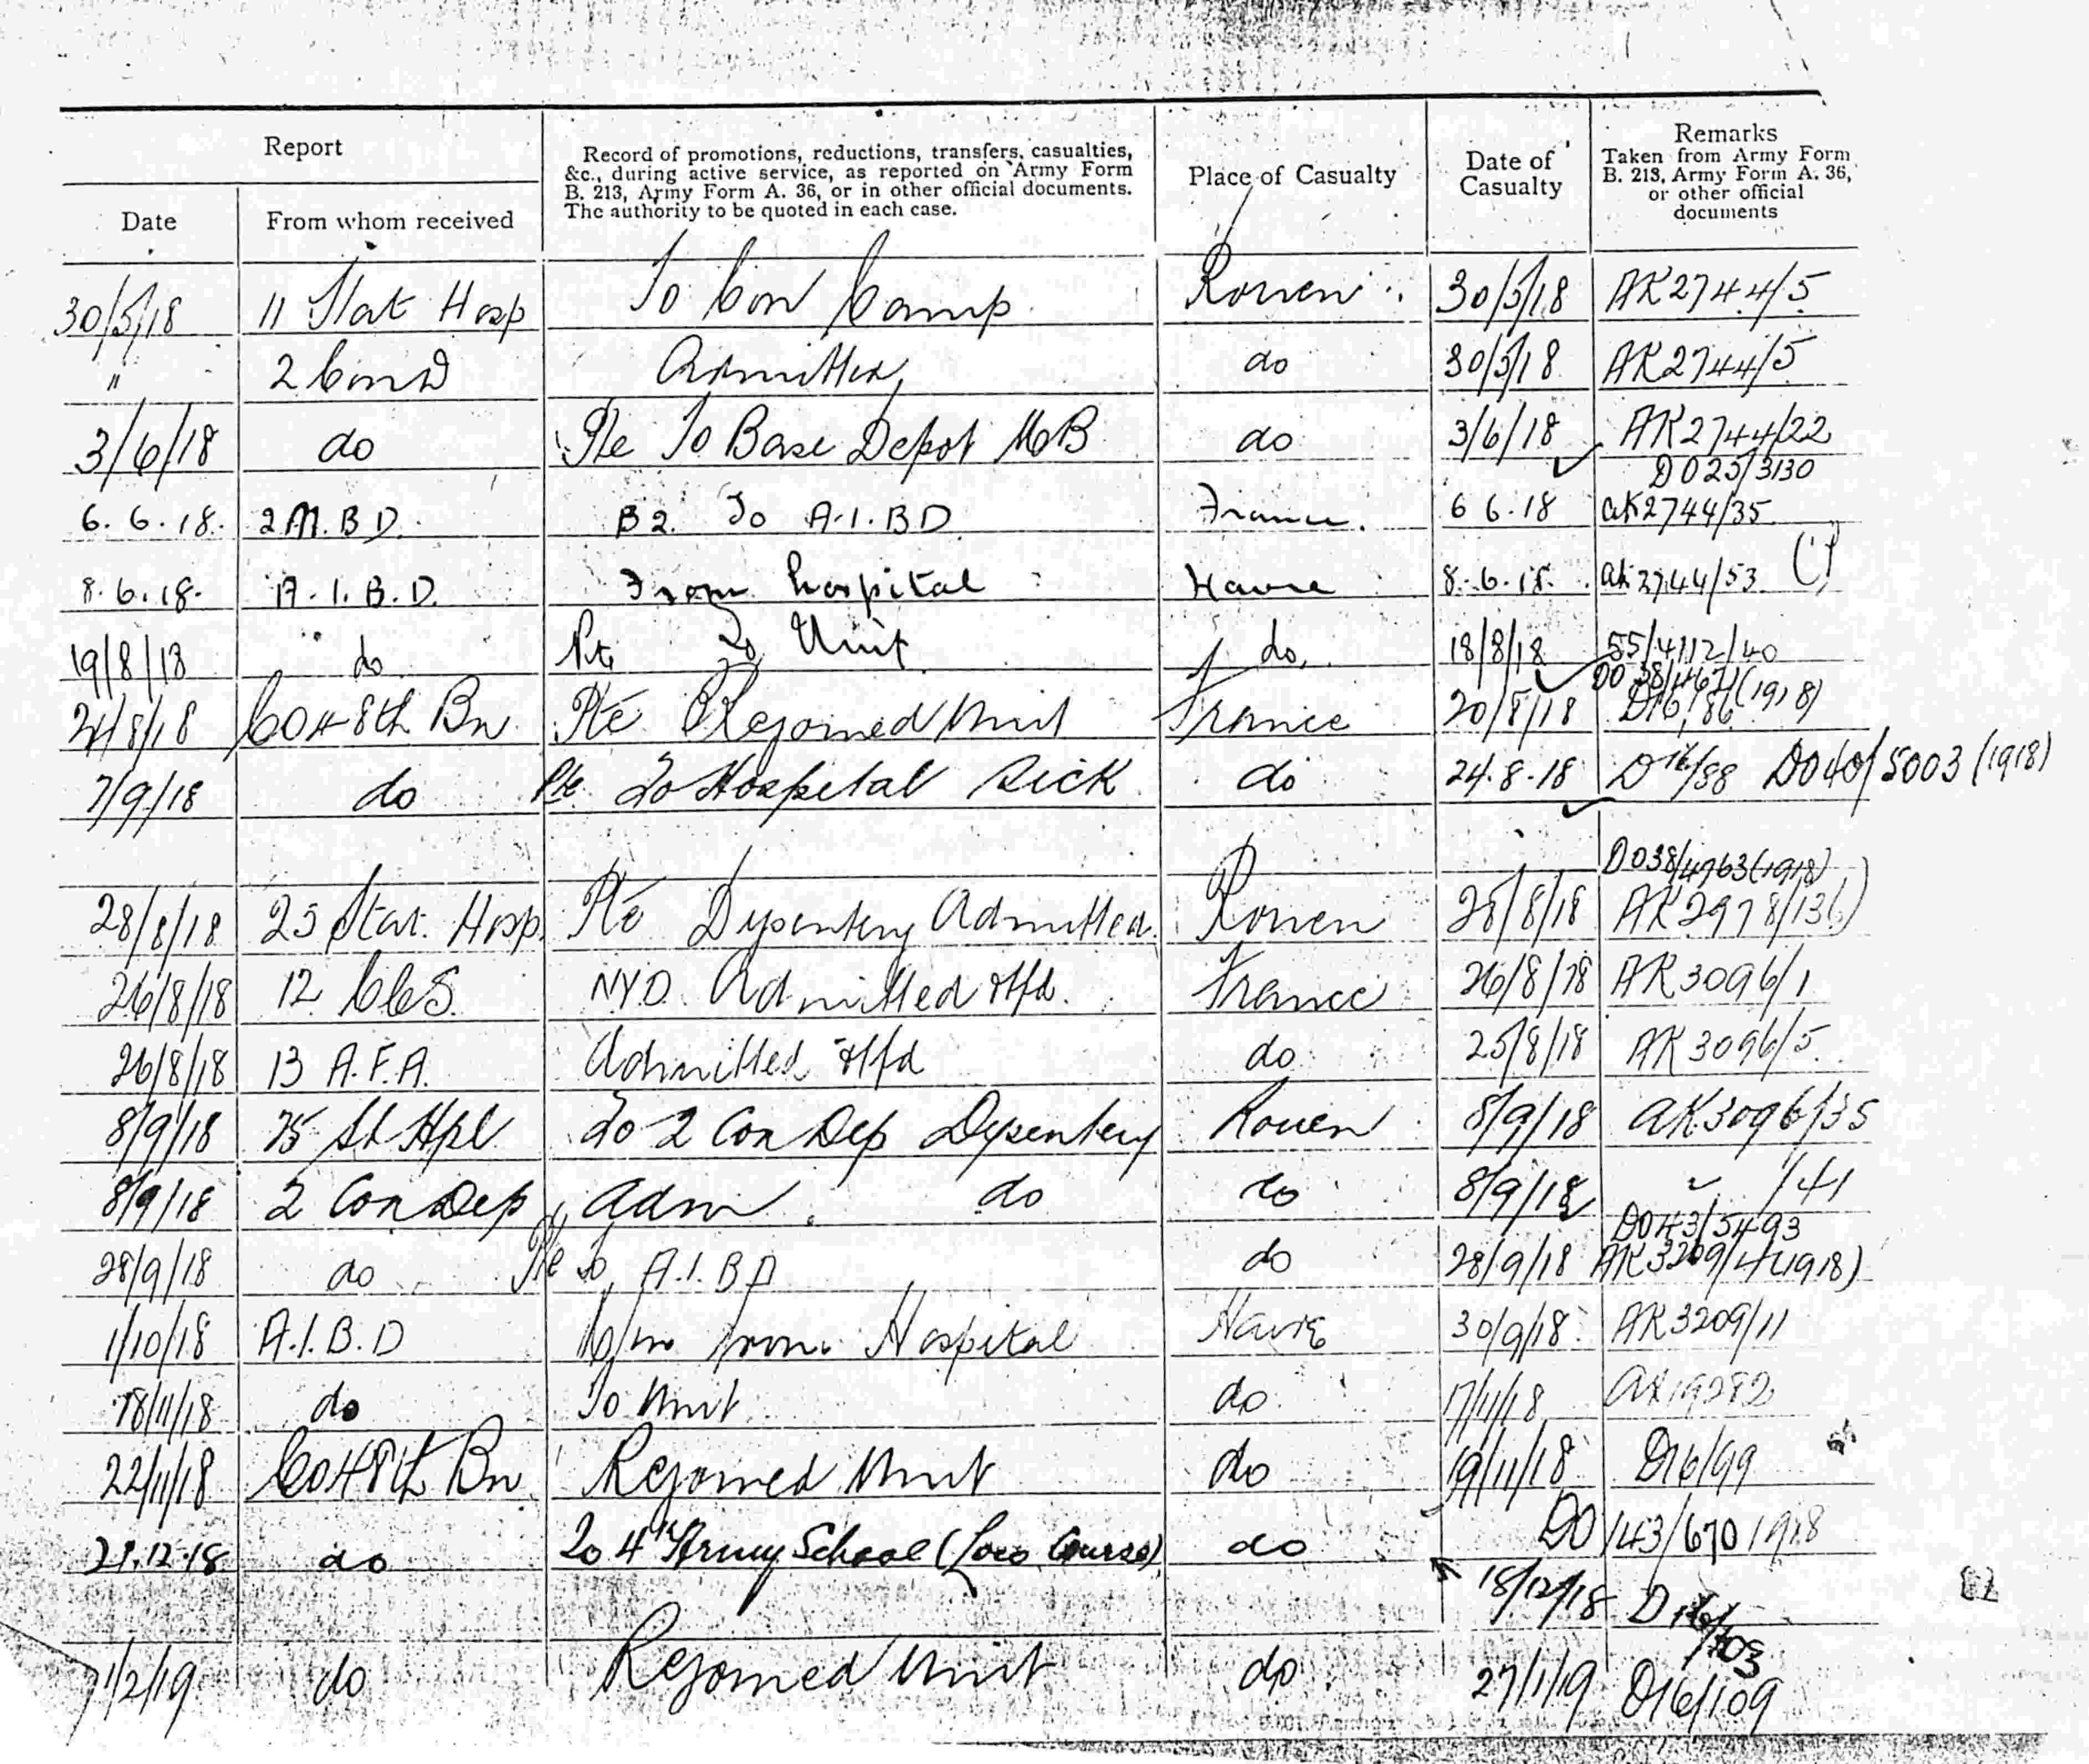 Report
Record of promotions, reductions, transfers, casualties, &c., during active service, as reported on Army Form B. 213, Army Form A. 36, or in other official documents. The authority to be quoted in each case.
Place of Casualty
Date of Casualty
Remarks Taken from Army Form B. 213, Army Form A. 36, or other official documents
Date From whom received
30/5/18 11 Stat Hosp To Con Camp Rouen 30/5/18 AK2744/5
" 2 Con D Admitted do 30/5/18 AK2744/5
3/6/18 do Pte To Base Depot MoB do 3/6/18 AK2744/22
DO25/3130
6.6.18. 2 M.B.D. B2. To A.I.BD France. 6 6.18 aK2744/35
8.6.18. A.I.B.D. From hospital Havre 8.6.18. aK2744/53
19/8/18 do Pte To Unit do 18/8/18 55/4112/40
DO 38/4621(1918)
21/8/18 Co 48th Bn Pte Rejoined Unit France 20/8/18 D16/86
7/9/18 do Pte To Hospital sick do 24.8.18 D16/88 DO40/5003 (1918)
DO38/4763(1918)
28/8/18 25 Stat. Hosp. Pte Dysentery Admitted Rouen 28/8/18 AK2978/136
26/8/18 12 CCS NYD. Admitted trfd. France 26/8/18 AK3096/1
26/8/18 13 A.F.A. Admitted trfd do 25/8/18 AK3096/5
8/9/18 25 St Hpl To 2 Con Dep Dysentery Rouen 8/9/18 aK3096/35
8/9/18 2 Con Dep Adm do do 8/9/18 " /41
DO43/5493
28/9/18 do Pte to A.I.BD do 28/9/18 AK3209/4 (1918)
1/10/18 A.I.B.D from Hospital Havre 30/9/18 AK3209/11
18/11/18 do To Unit do 17/11/18 aK19282
22/11/18 Co 48th Bn Rejoined Unit do 19/11/18 D16/99
DO/43/670 1918
21.12.18 do To 4th Army School (Loco Course) do 18/12/18 D16/103
1/2/19 do Rejoined Unit do 27/1/19 D16/109